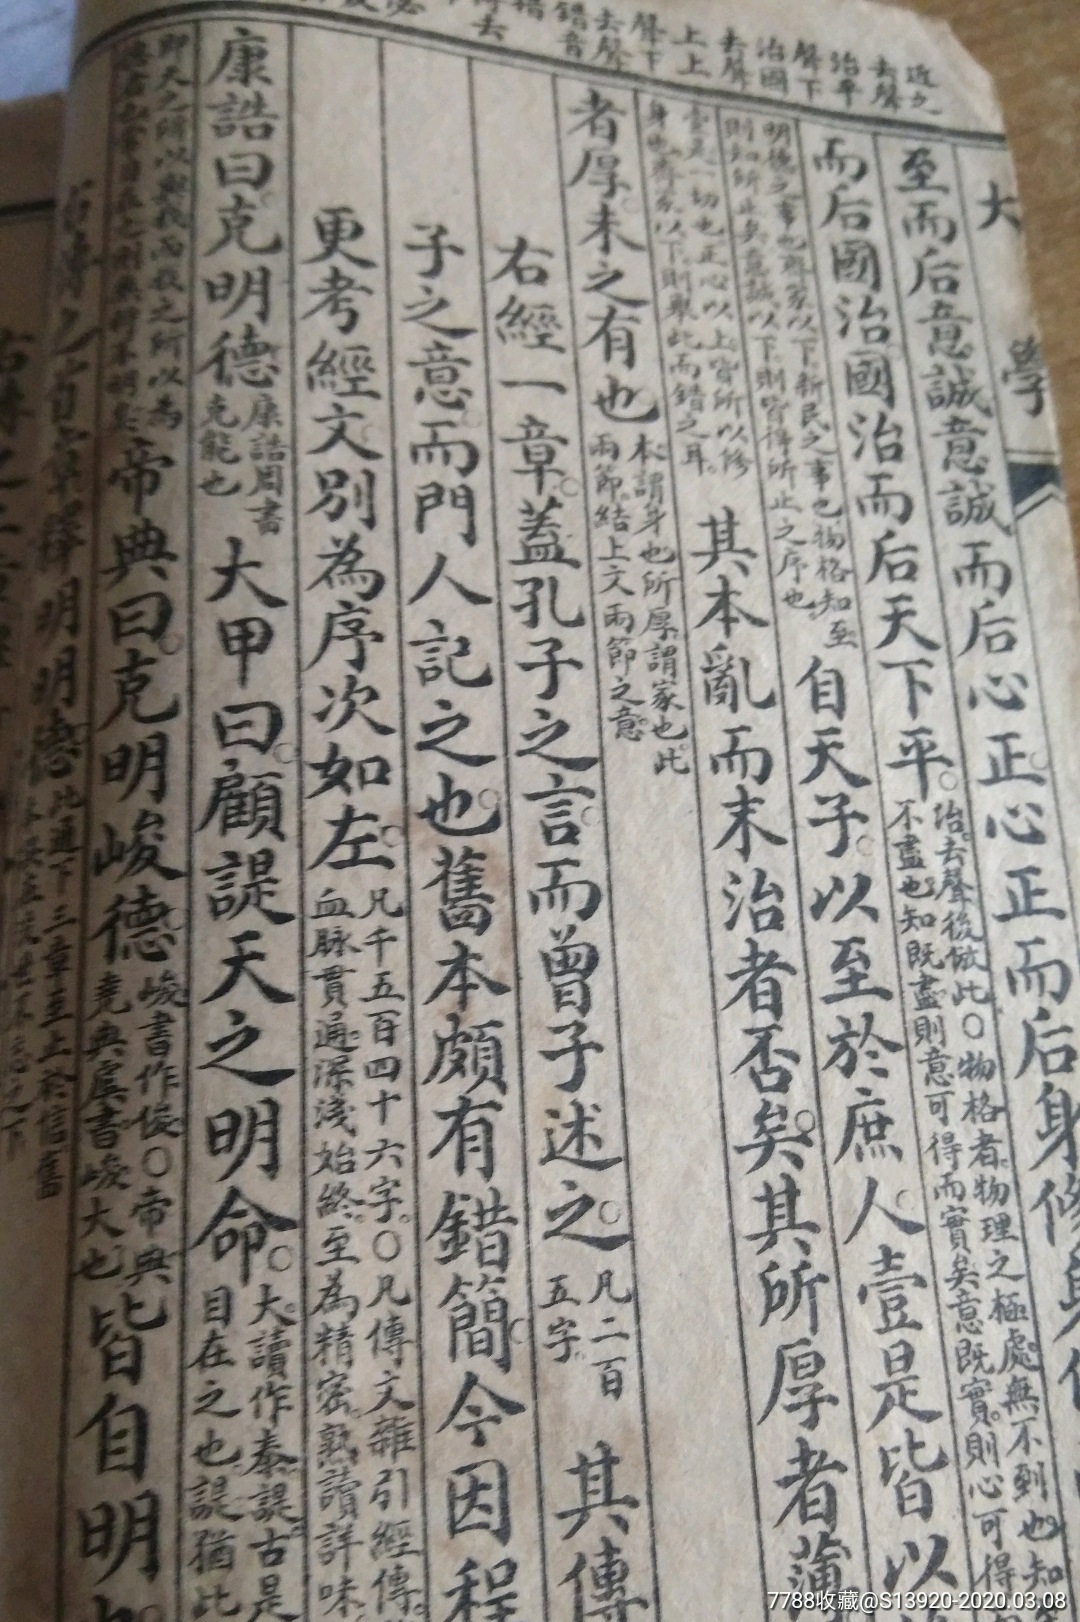 近之
去聲
治平
聲下
治國
去聲
上上
聲下
去聲
錯音
大學
至而后意誠意誠而后心正心正而后身修身
而后國治國治而后天下平
治去聲後倣此〇物格者物理之極處無不到也知
不盡也知既盡則意可得而實矣意既實則心可得
明德之事也齊家以下新民之事也物格知至
則知所止矣意誠以下則皆得所止之序也
自天子以至於庶人壹是皆以
壹是一切也正心以上皆所以修
身也齊家以下則舉此而錯之耳
其本亂而末治者否矣其所厚者薄
者厚未之有也
本謂身也所厚謂家也此
兩節結上文兩節之意
右經一章蓋孔子之言而曾子述之
凡二百
五字
其傳
子之意而門人記之也舊本頗有錯簡今因程
更考經文別為序次如左
凡千五百四十六字〇凡傳文雜引經傳
血脉貫通深淺始終至為精密熟讀詳味
康誥曰克明德
康誥周書
克能也
大甲曰顧諟天之明命
大讀作泰諟古是
目在之也諟猶此
即天之所以與我而我之所以為
帝典曰克明峻德
峻書作俊〇帝典
堯典虞書峻大也
皆自明
右傳之首章釋明明德
此通下三章至止於信舊
7788收藏@S13920-2020.03.08